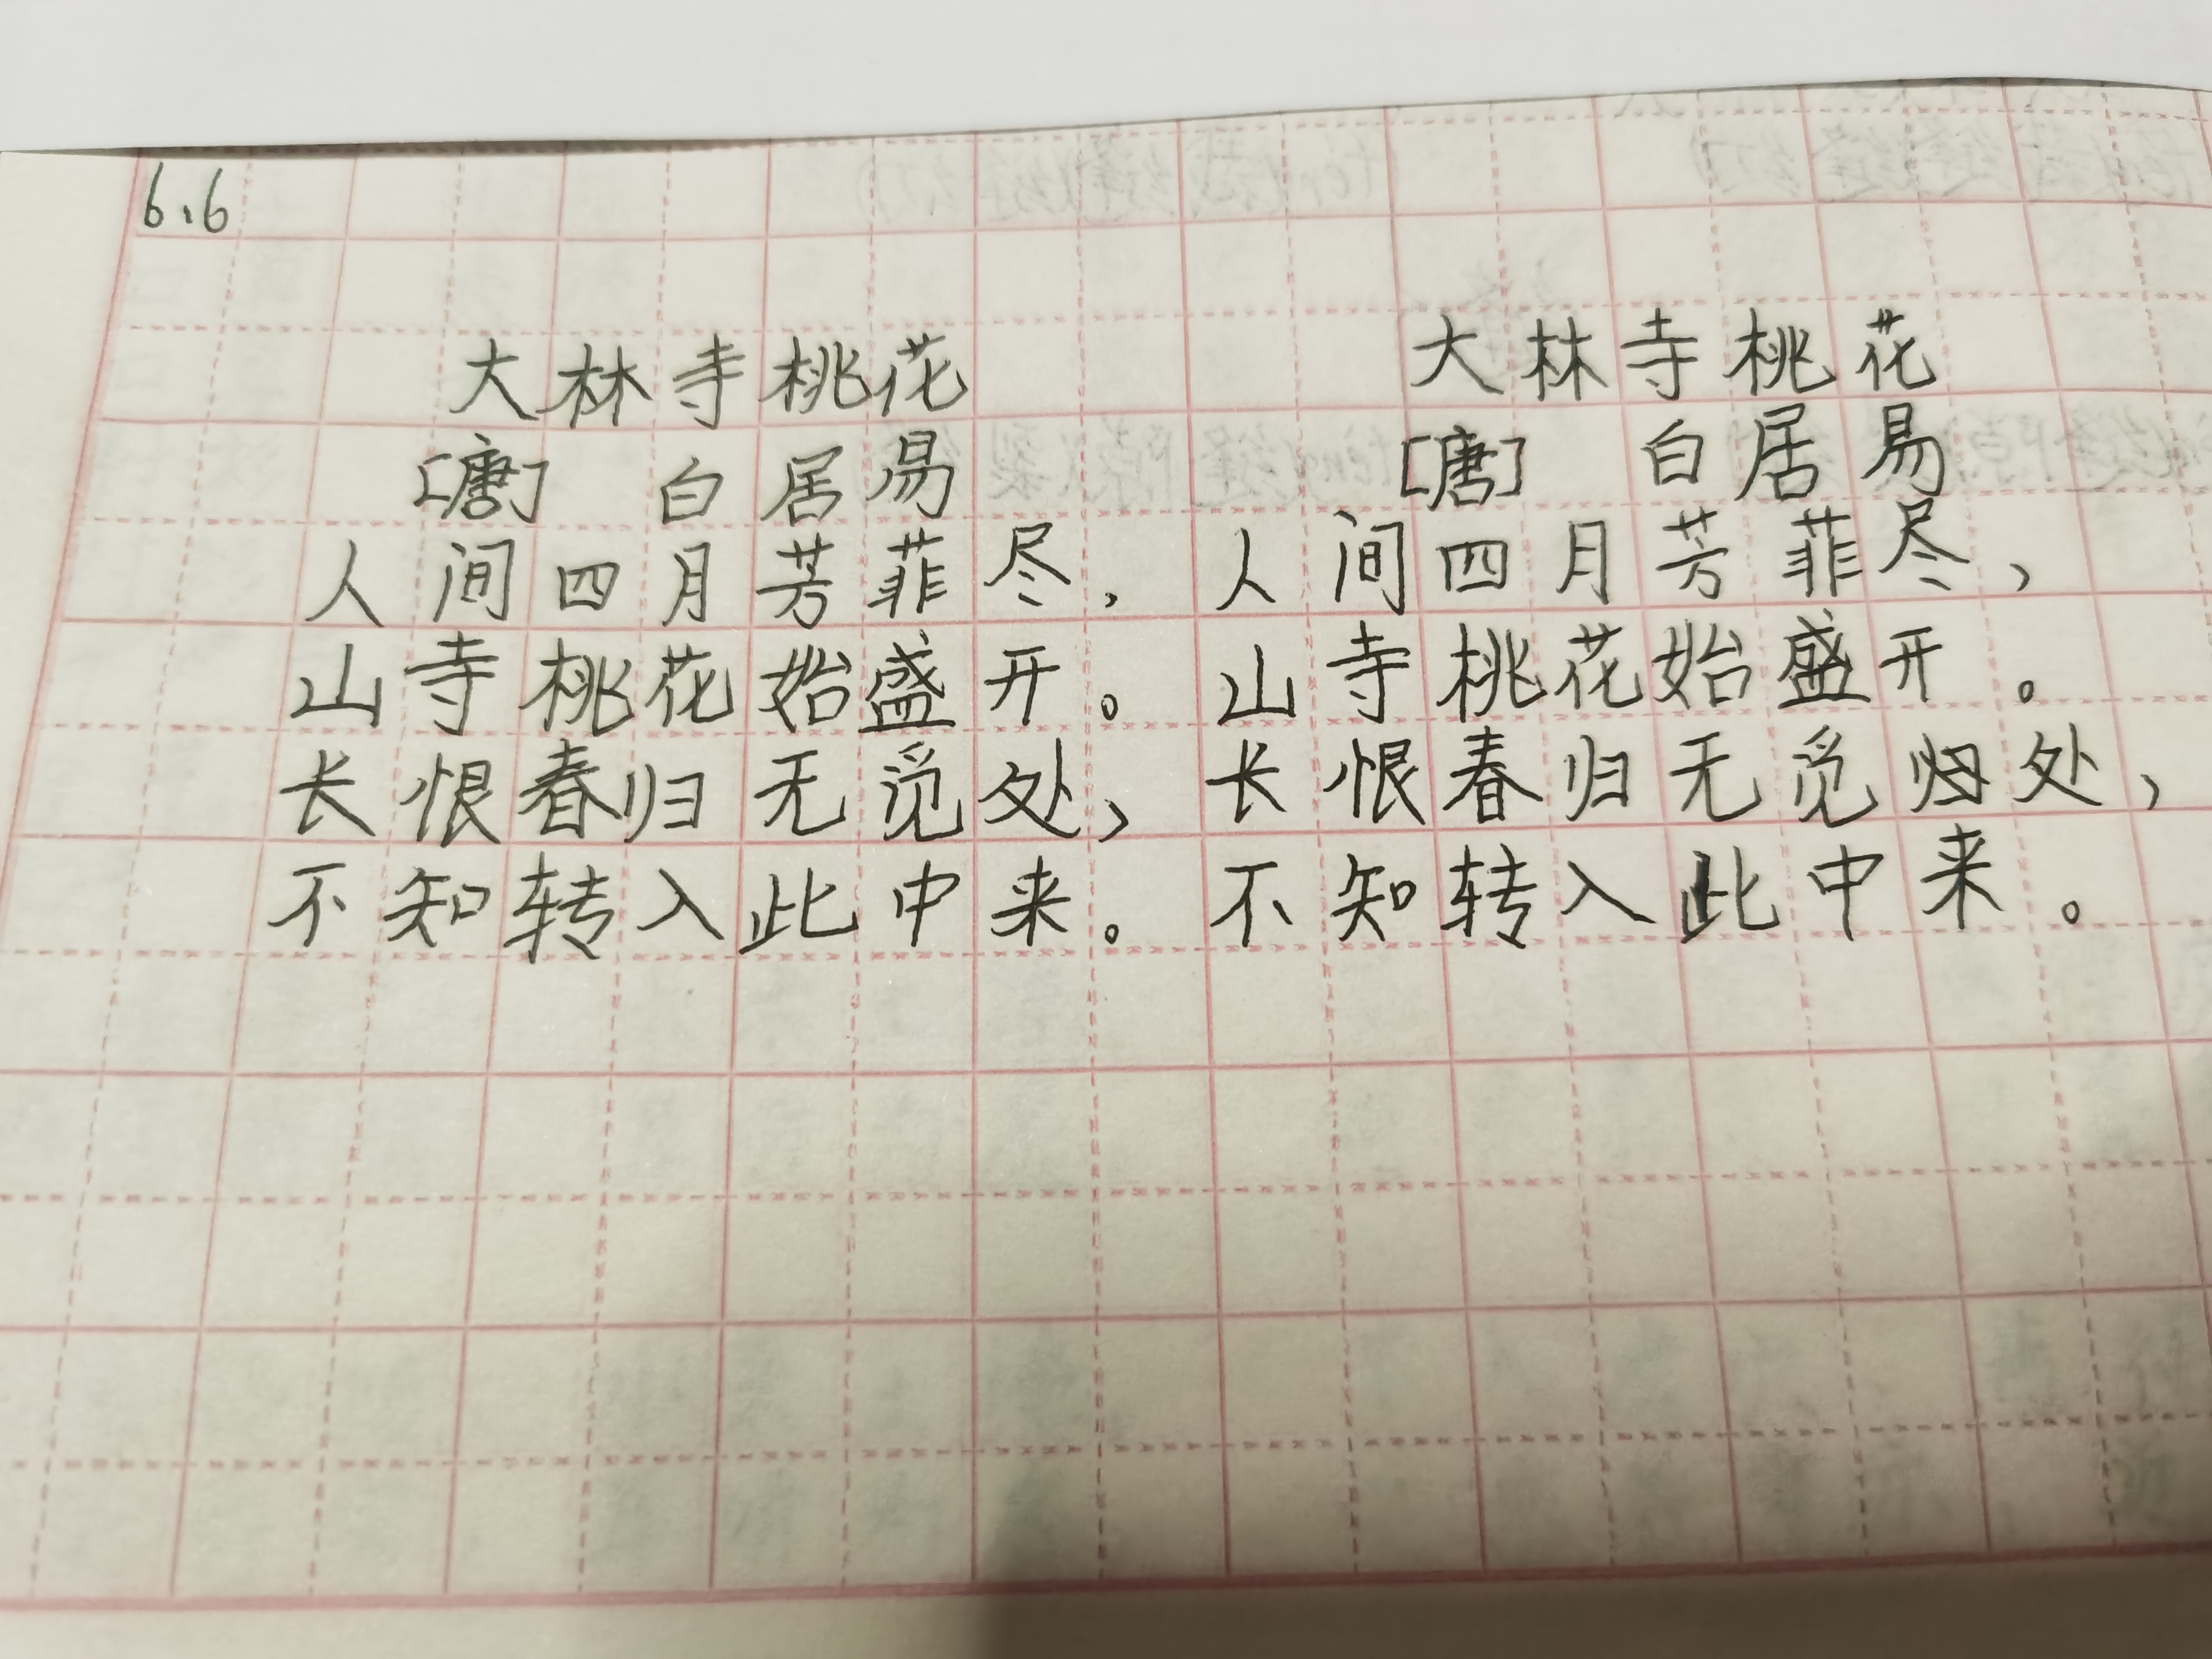 6.6
大林寺桃花
[唐] 白居易
人间四月芳菲尽，
山寺桃花始盛开。
长恨春归无觅处，
不知转入此中来。
大林寺桃花
[唐] 白居易
人间四月芳菲尽，
山寺桃花始盛开。
长恨春归无觅处，
不知转入此中来。